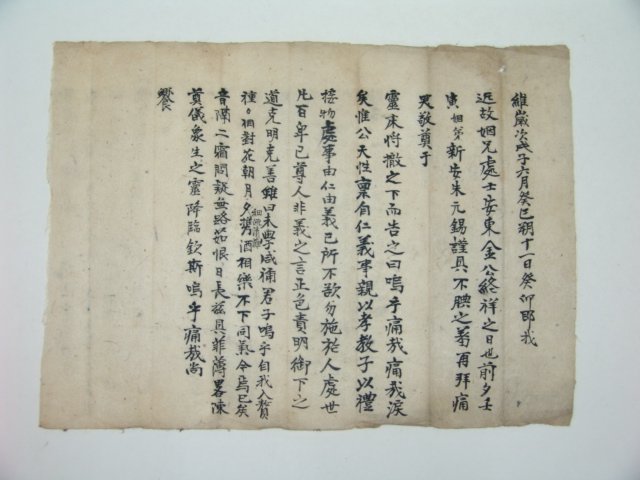 維歲次戊子六月癸巳朔十一日癸卯即我
近故姻兄處士安東金公終祥之日也前夕壬
寅姻弟新安朱元錫謹具不腆之羞再拜痛
哭敬奠于
靈床將撤之下而告之曰嗚乎痛哉痛哉淚
矣惟公天性稟有仁義事親以孝教子以禮
接物處事由仁由義己所不欲勿施於人處世
凡百卑己尊人非義之言正色責明御下之
道克明克善雖曰未學咸稱君子嗚乎自我入贅
種種相對花朝月夕携酒相樂不下同氣今焉已矣
音隔二霜問疑無路茹恨日長玆具菲薄畧陳
奠儀象生之靈降臨欽斯嗚乎痛哉尚
饗